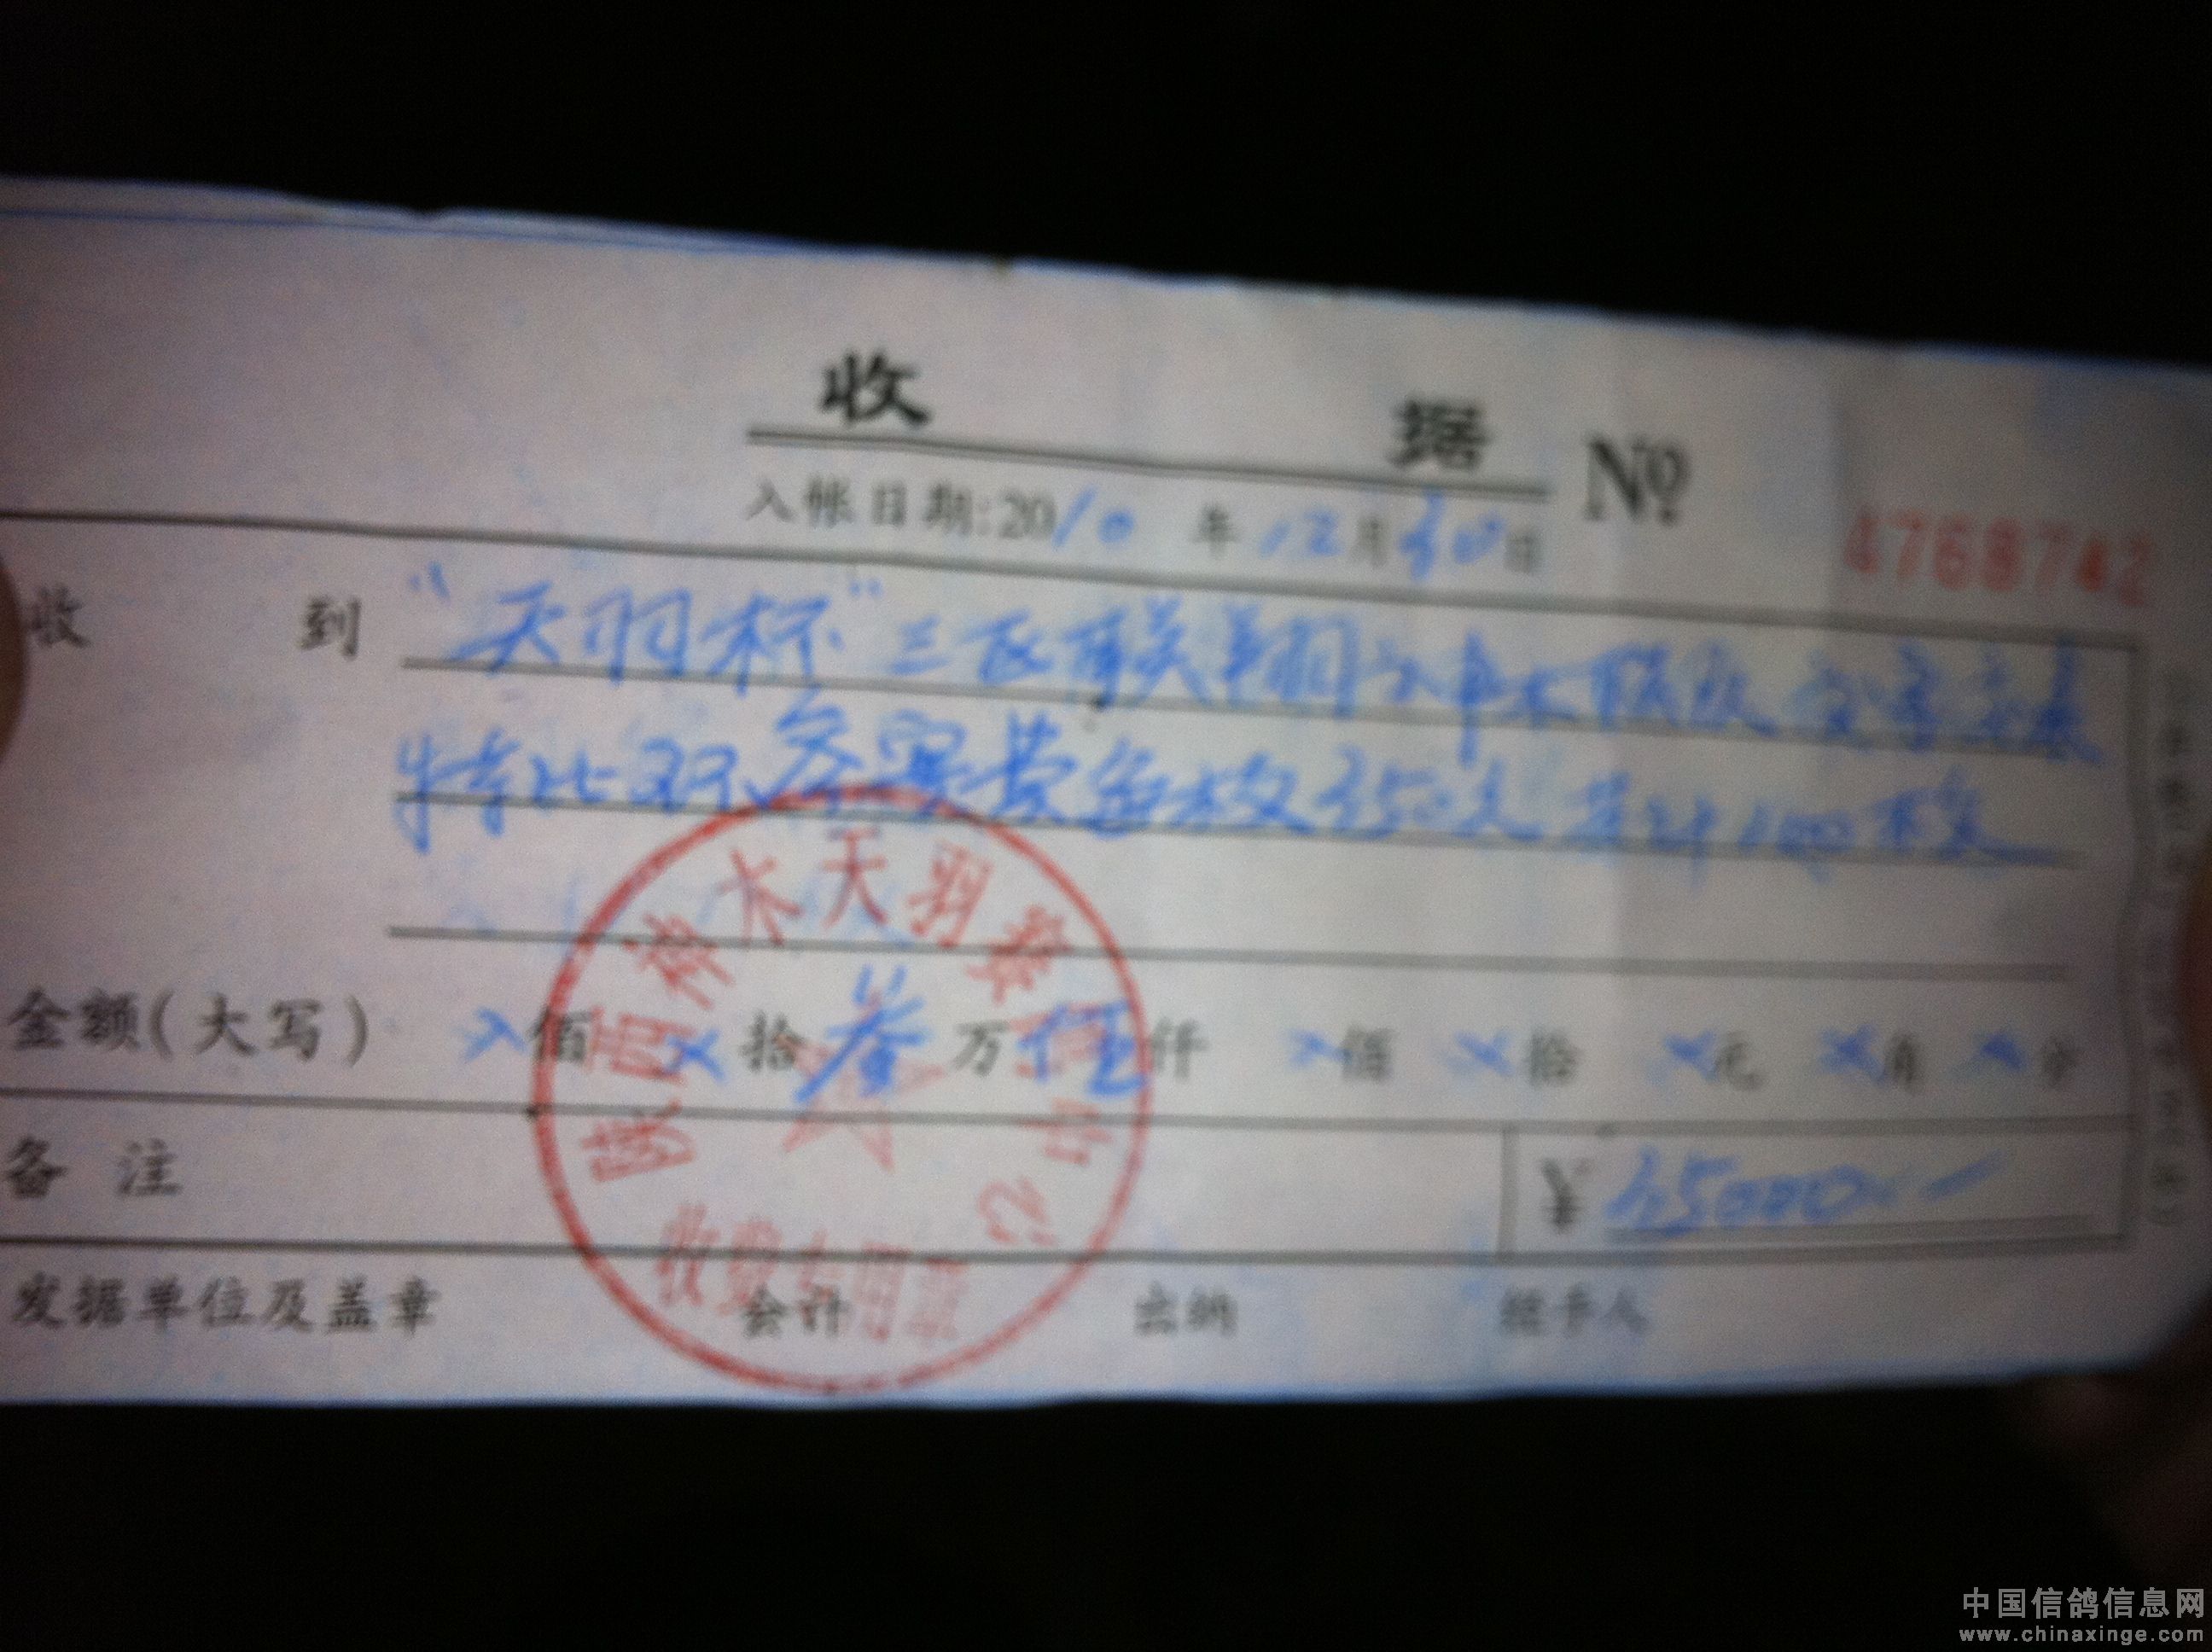 收 据 №
入帐日期:2010年12月30日
4768742
收 到 "天羽杯"三飞联翔
特比环参赛费每枚350元共计100枚
金额(大写) ×佰×拾叁万伍仟×佰×拾×元×角×分
备 注 ¥ 35000.—
发据单位及盖章 会计 出纳 经手人
陕西神木天羽赛鸽中心
收费专用章
中国信鸽信息网
www.chinaxinge.com